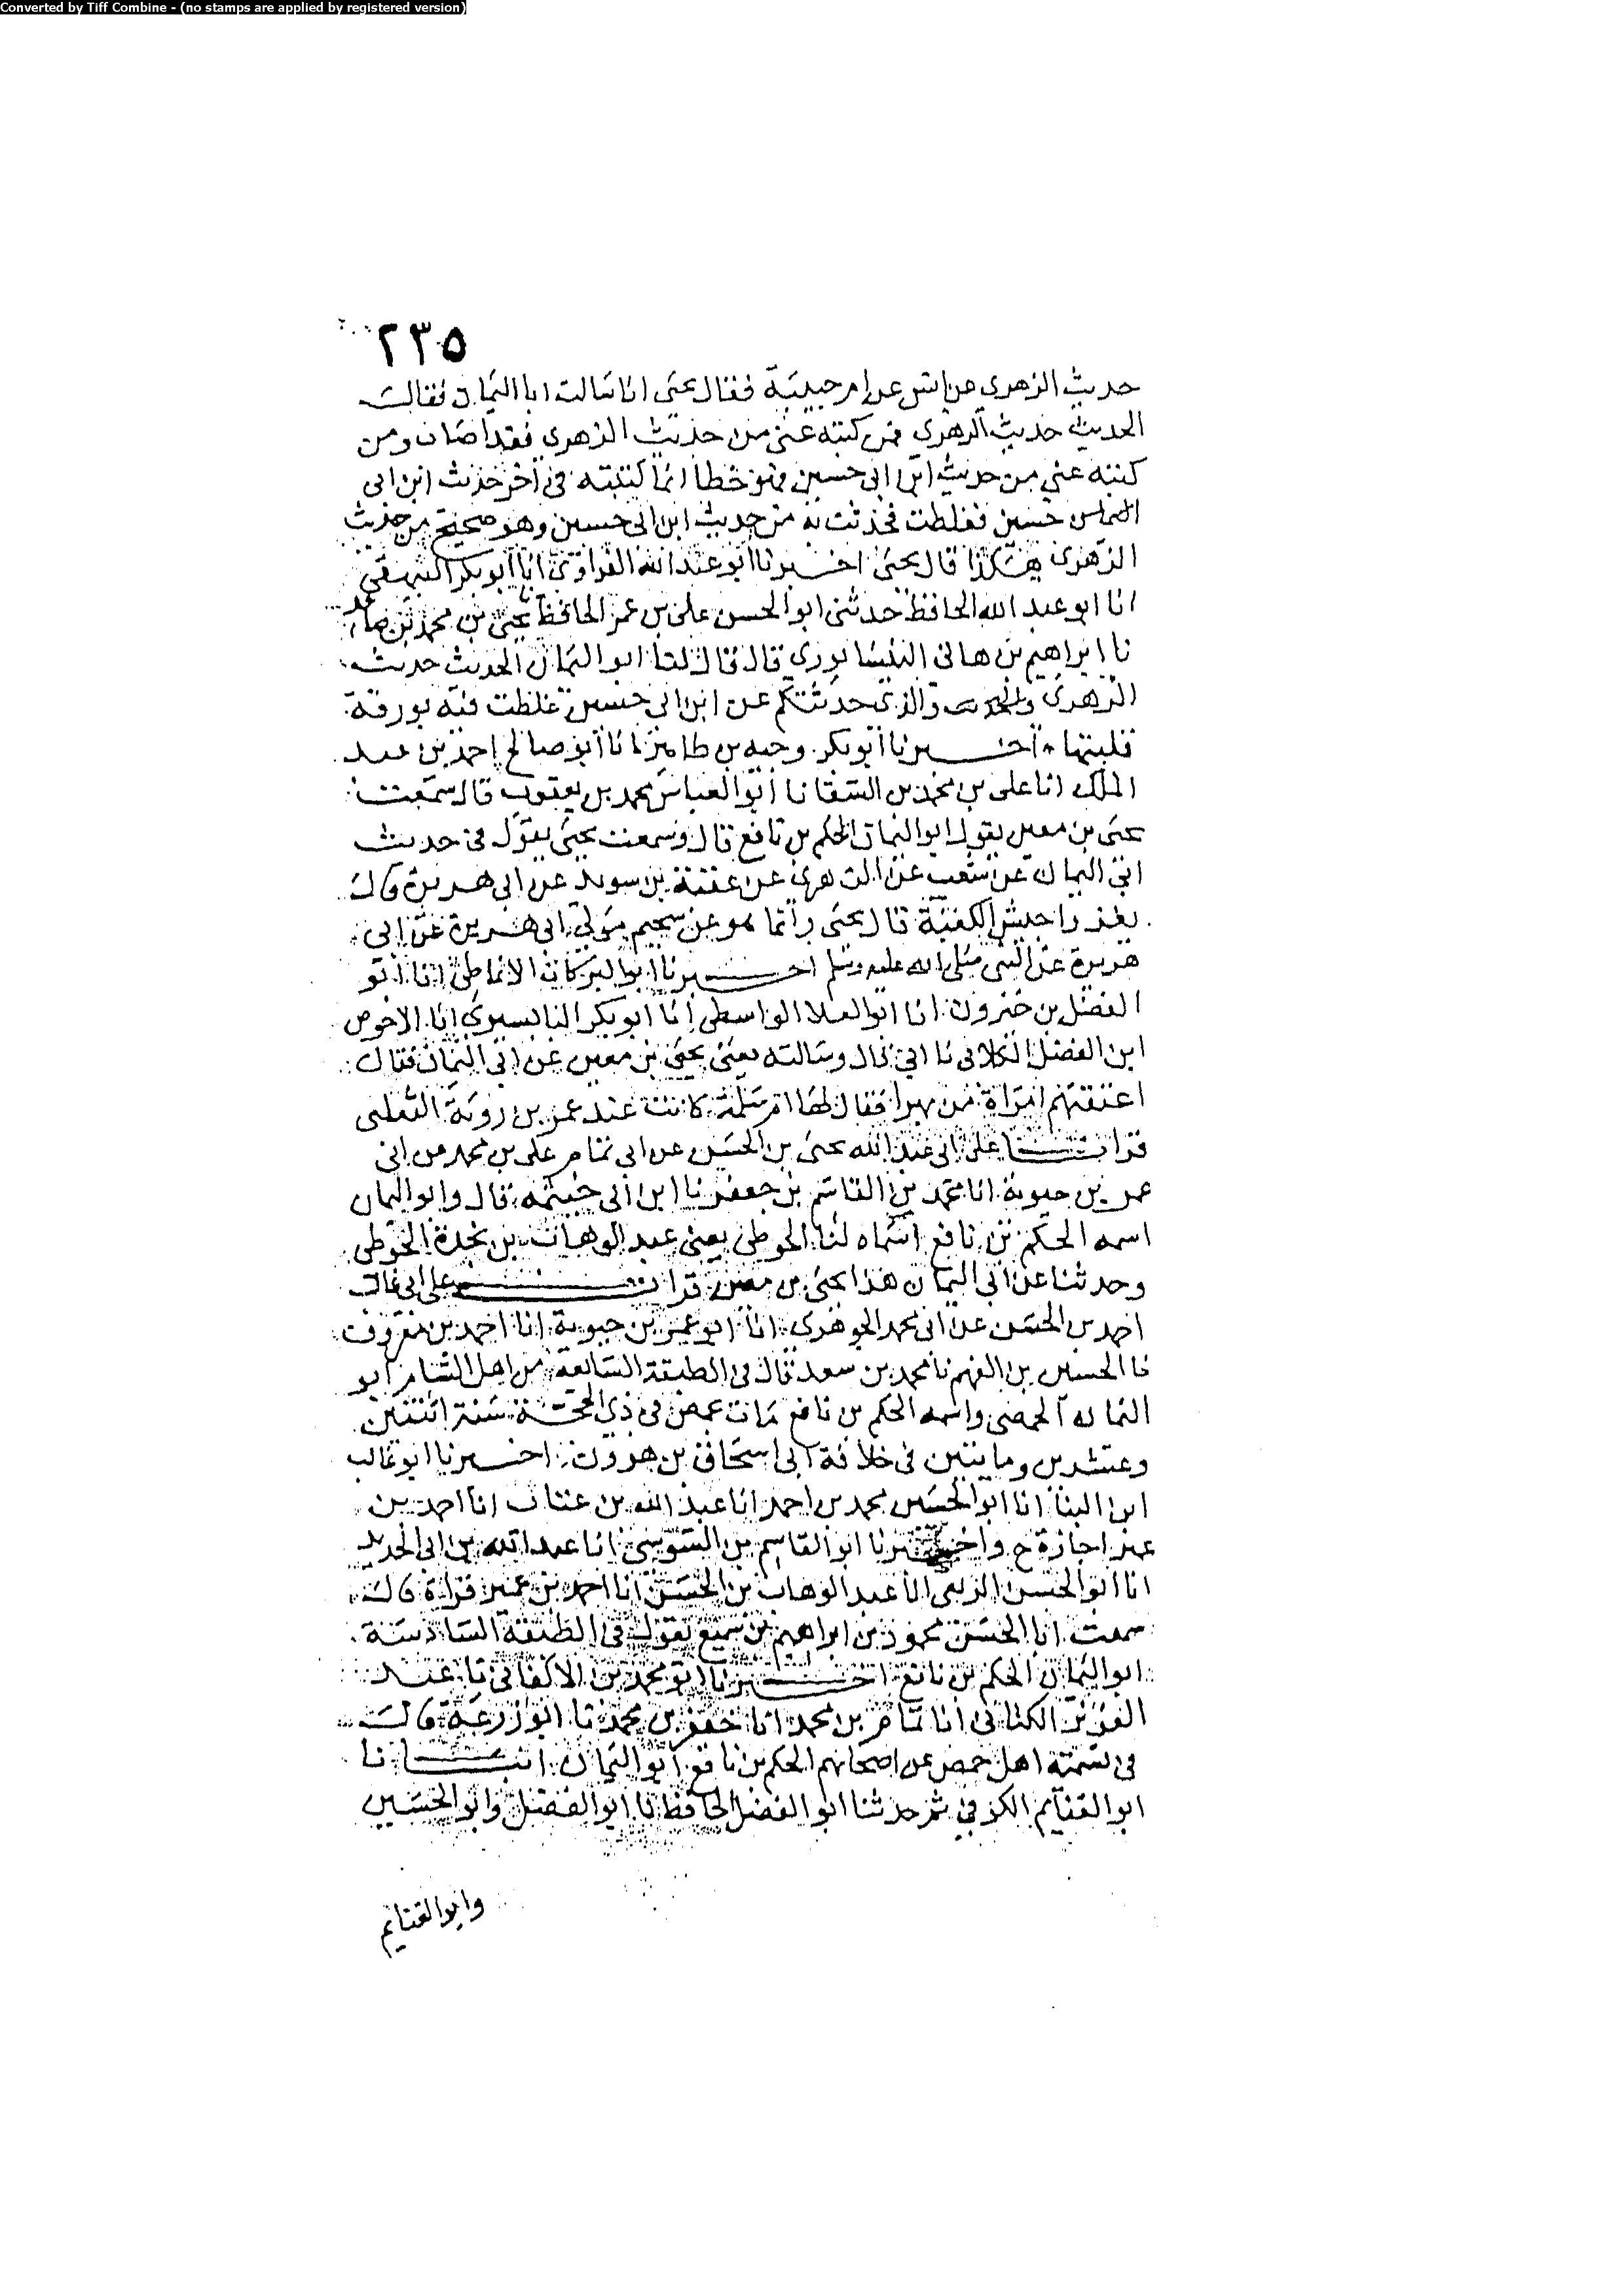 Converted by Tiff Combine - (no stamps are applied by registered version)
٢٣٥
حديث الزهري عن انس عن ام حبيبة فقال يحيى انا سالت ابا اليمان فقال
الحديث حديث الزهري فمن كتبه عني من حديث الزهري فقد اصاب ومن
كتبه عني من حديث ابن ابي حسين فهو خطا انما كتبته في اخر حديث ابن ابي
حسين فغلطت فحدثت به من حديث ابن ابي حسين وهو صحيح من حديث
الزهري هكذا قال يحيى اخبرنا ابو عبد الله الفراوي انا ابو بكر البيهقي
انا ابو عبد الله الحافظ حدثني ابو الحسن علي بن عمر الحافظ يحيى بن محمد بن صاعد
نا ابراهيم بن هاني النيسابوري قال قال لنا ابو اليمان الحديث حديث
الزهري والذي حدثتكم عن ابن ابي حسين غلطت فيه بورقة
قلبتها اخبرنا ابو بكر وجيه بن طاهر انا ابو صالح احمد بن عبد
الملك انا علي بن محمد بن السقا نا ابو العباس محمد بن يعقوب قال سمعت
يحيى بن معين يقول ابو اليمان الحكم بن نافع قال وسمعت يحيى يقول في حديث
ابي اليمان عن شعيب عن الزهري عن عقبة بن سويد عن ابي هريرة قال
يغزوا جيش الكعبة قال يحيى وانما هو عن سحيم مولى ابي هريرة عن ابي
هريرة عن النبي صلى الله عليه وسلم اخبرنا ابو البركات الانماطي انا ابو
الفضل بن خيرون انا ابو العلا الواسطي انا ابو بكر البابسيري انا الاحوص
ابن الفضل الغلابي نا ابي قال وسالته يعني يحيى بن معين عن ابي اليمان فقال
اعتقتهم امراة من بهرا فقال لها ام سلمة كانت عند عمر بن روبة التغلبي
قرات على ابي عبد الله يحيى بن الحسن عن ابي تمام علي بن محمد عن ابي
عمر بن حيوية انا محمد بن القاسم بن جعفر نا ابن ابي خيثمة قال وابو اليمان
اسمه الحكم بن نافع اسماه لنا الحوطي يعني عبد الوهاب بن نجدة الحوطي
وحدثنا عن ابي اليمان هذا يحيى بن معين قرات على ابي غالب
احمد بن الحسن عن ابي محمد الجوهري انا ابو عمر بن حيوية انا احمد بن معروف
نا الحسين بن الفهم نا محمد بن سعد قال في الطبقة السابعة من اهل الشام ابو
اليمان الحمصي واسمه الحكم بن نافع مات بحمص في ذي الحجة سنة اثنتين
وعشرين وماتيين في خلافة ابي اسحاق بن هرون اخبرنا ابو غالب
ابن البنا انا ابو الحسين محمد بن احمد انا عبد الله بن عتاب انا احمد بن
عمير اجازة ح واخبرنا ابو القاسم بن السوسي انا عبد الله بن ابي الحديد
انا ابو الحسن الربعي انا عبد الوهاب بن الحسن انا احمد بن عمير قراة قال
سمعت ابا الحسن محمود بن ابراهيم بن سميع يقول في الطبقة السادسة
ابو اليمان الحكم بن نافع اخبرنا ابو محمد بن الاكفاني نا عبد
العزيز الكتاني انا تمام بن محمد انا جعفر بن محمد نا ابو زرعة قال
في تسمية اهل حمص عن اصحابهم الحكم بن نافع ابو اليمان انبانا
ابو الغنايم الكوفي ثم حدثنا ابو الفضل الحافظ نا ابو الفضل وابو الحسين
وابو الغنايم